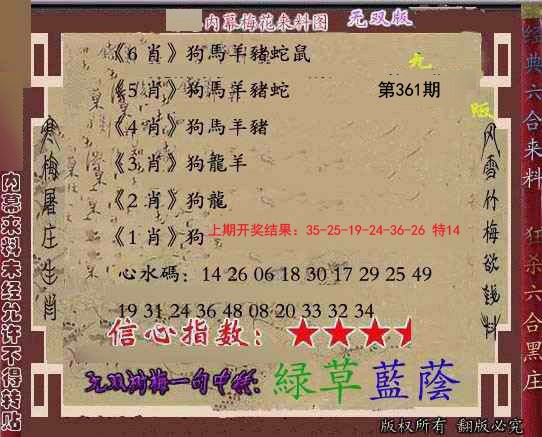 内幕梅花来料图 无双版
《6 肖》狗馬羊豬蛇鼠
九
《5 肖》狗馬羊豬蛇 第361期
版
《4 肖》狗馬羊豬
《3 肖》狗龍羊
《2 肖》狗龍
《1 肖》狗 上期开奖结果：35-25-19-24-36-26 特14
心水碼：14 26 06 18 30 17 29 25 49
19 31 24 36 48 08 20 33 32 34
信心指数：
无双湖梅一句中特：綠草藍蔭
寒梅屠庄生肖
风雪竹梅欲钱料
内幕来料未经允许不得转贴
经典六合来料 狂杀六合黑庄
版权所有 翻版必究